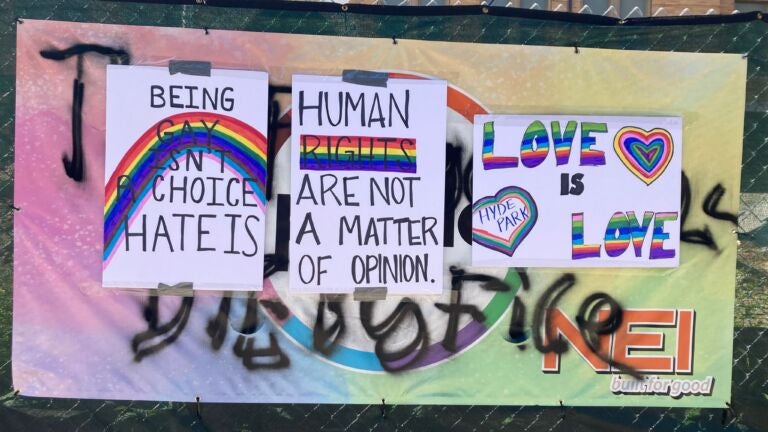 BEING
GAY
ISN'T
A CHOICE
HATE IS
HUMAN
RIGHTS
ARE NOT
A MATTER
OF OPINION.
LOVE
IS
LOVE
HYDE
PARK
NEI
built for good